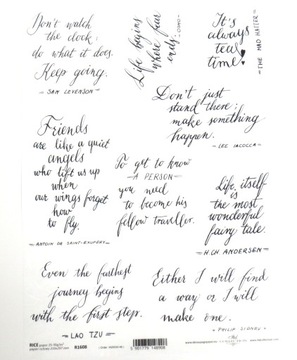 Don't watch
the clock;
do what it does.
Keep going.
- SAM LEVENSON -
Life begins
where fear
ends.
- OSHO -
It's
always
tea
time!
- THE MAD HATTER -
Don't just
stand there;
make something
happen.
- LEE IACOCCA -
Friends
are like a quiet
angels
who lift us up
when
our wings forget
how
to fly.
- ANTOIN DE SAINT-EXUPERY -
To get to know
- A PERSON -
you need
to become his
fellow traveller.
Life itself
is the
the most
wonderful
fairy tale
- H.CH. ANDERSEN -
Even the furthest
journey begins
with the first step.
- LAO TZU -
Either I will find
a way or I will
make one.
- PHILIP SIDNEY -
RICE
R1608